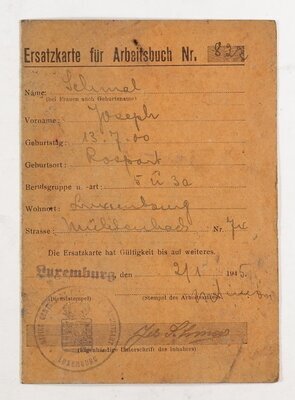 Ersatzkarte für Arbeitsbuch Nr. 828
Name: Schmal
(bei Frauen auch Geburtsname)
Vorname: Joseph
Geburtstag: 13.7.00
Geburtsort: Rosport
Berufsgruppe u. -art: 5 ü 3a
Wohnort: Luxemburg
Strasse: Mühlenbach Nr.
Die Ersatzkarte hat Gültigkeit bis auf weiteres.
Luxemburg, den 2/1 1945
(Dienststempel) (Stempel des Arbeitsamtes)
LUXEMBURG
(Eigenhändige Unterschrift des Inhabers)